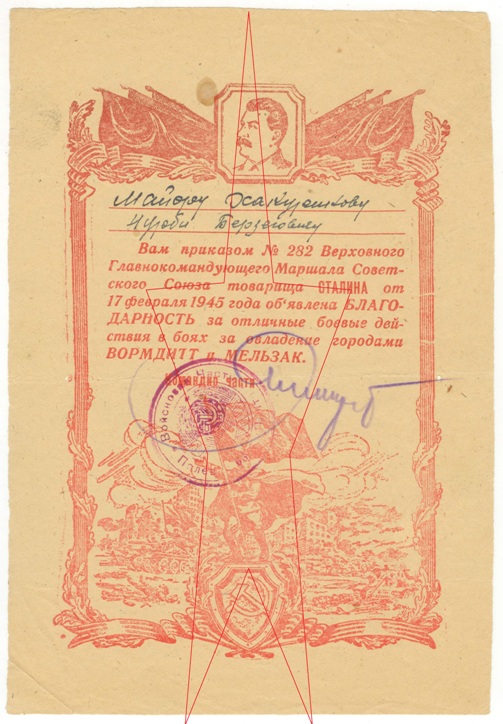 Майору
Вам приказом № 282 Верховного
Главнокомандующего Маршала Совет-
ского Союза товарища СТАЛИНА от
17 февраля 1945 года об'явлена БЛАГО-
ДАРНОСТЬ за отличные боевые дей-
ствия в боях за овладение городами
ВОРМДИТТ и МЕЛЬЗАК.
Командир части